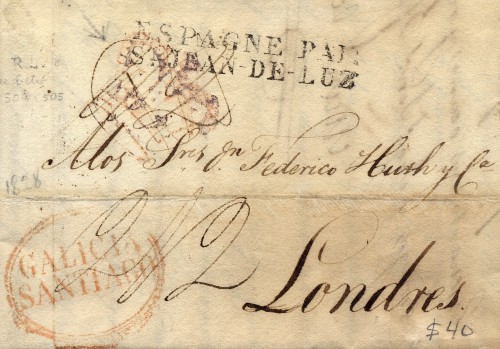 ESPAGNE PAR
St JEAN-DE-LUZ
R.L.
505
Alos Sres Dn Federico Huth y Ca
1828
2/2
GALICIA
SANTIAGO
Londres.
$40